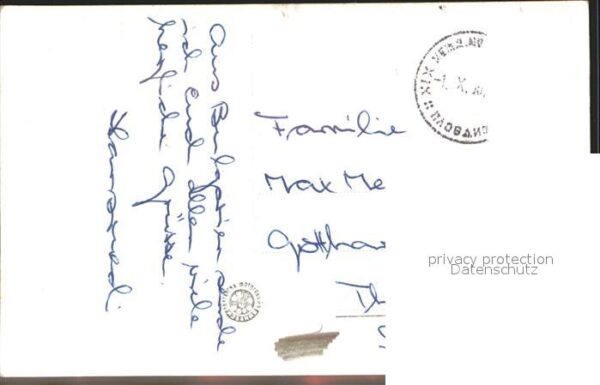 Aus Bulgarien sende
ich Euch allen viele
herzliche Grüsse.
Familie
Max Me
Gottha
Th
privacy protection
Datenschutz